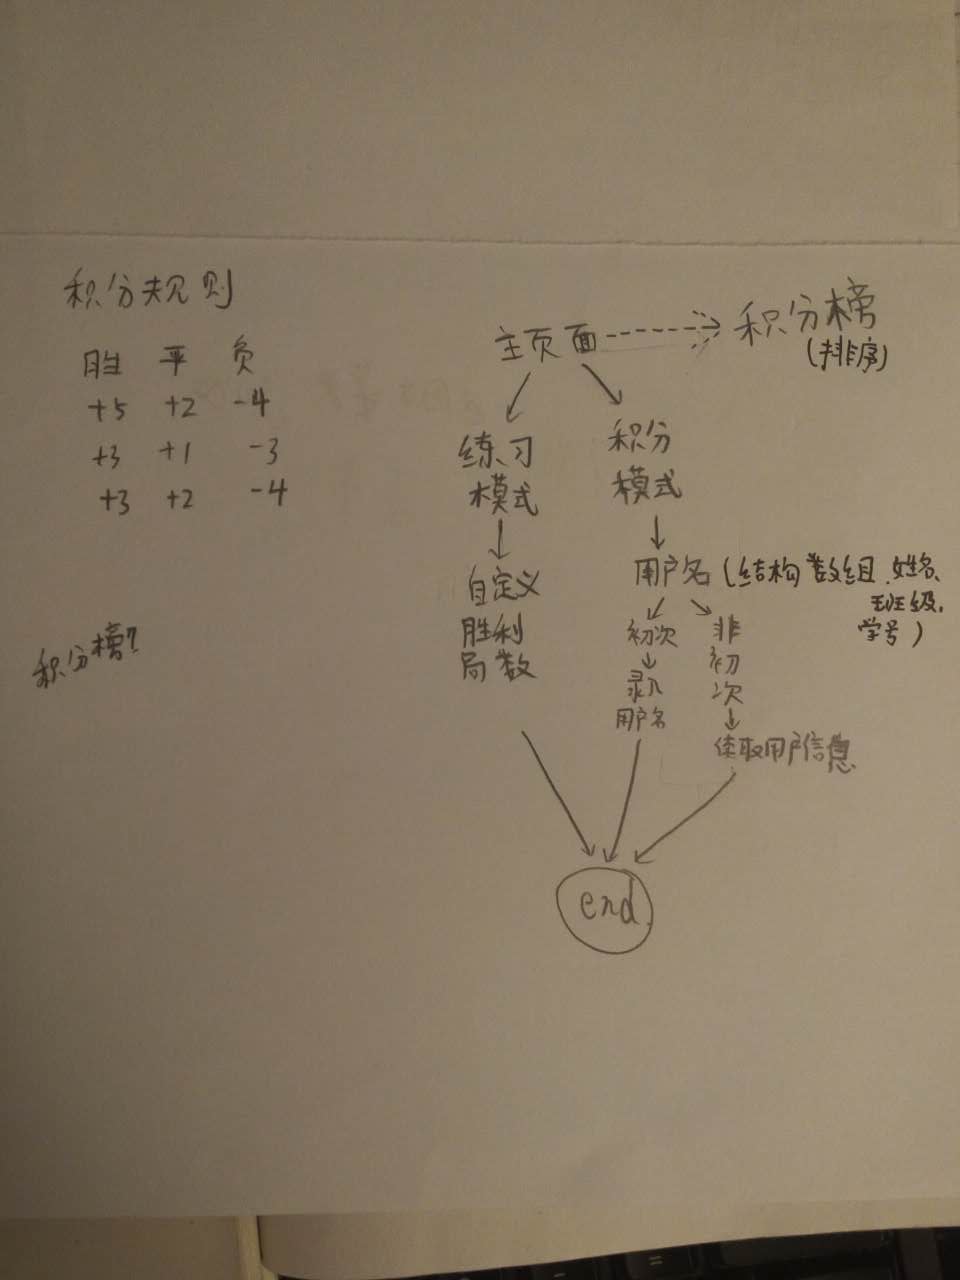 积分规则
胜 平 负
+5 +2 -4
+3 +1 -3
+3 +2 -4
积分榜?
主页面
积分榜
(排序)
练习
模式
自定义
胜利
局数
积分
模式
用户名(结构数组.姓名、
班级.
学号)
初次
录入
用户名
非
初
次
读取用户信息
end.